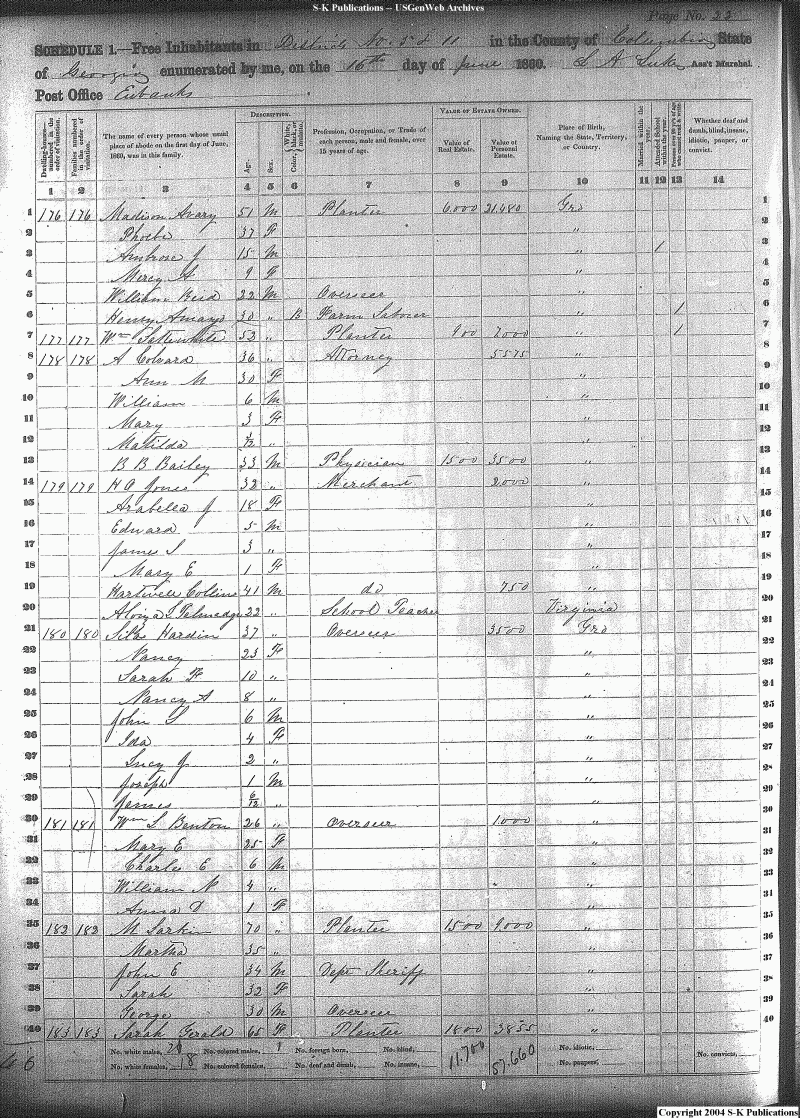 S-K Publications -- USGenWeb Archives
Page No. 22
SCHEDULE 1.—Free Inhabitants in Districts No. 5 & 11 in the County of Columbia State
of Georgia enumerated by me, on the 16th day of June 1860. Ass't Marshal
Post Office Eubanks
Dwelling-houses numbered in the order of visitation.
Families numbered in the order of visitation.
The name of every person whose usual place of abode on the first day of June, 1860, was in this family.
DESCRIPTION.
Age.
Sex.
Color, White, black, or mulatto.
Profession, Occupation, or Trade of each person, male and female, over 15 years of age.
VALUE OF ESTATE OWNED.
Value of Real Estate.
Value of Personal Estate.
Place of Birth, Naming the State, Territory, or Country.
Married within the year.
Attended School within the year.
Persons over 20 y'rs of age who cannot read & write.
Whether deaf and dumb, blind, insane, idiotic, pauper, or convict.
1 2 3 4 5 6 7 8 9 10 11 12 13 14
1 176 176 Madison Avary 51 M Planter 6,000 21,480 Geo 1
2 Phoebe 37 F " 2
3 Ambrose J 15 M " 1 3
4 Mercy A 9 F " 4
5 William Reid 22 M Overseer " 5
6 Henry 30 " B Farm Laborer " 1 6
7 177 177 Wm Sattewhite 53 " Planter 900 7000 " 1 7
8 178 178 A Colvard 36 " Attorney 5575 " 8
9 Ann M 30 F " 9
10 William 6 M " 10
11 Mary 3 F " 11
12 Matilda " " 12
13 B B Bailey 33 M Physician 1500 3500 " 13
14 179 179 H A Jones 32 " Merchant 2000 " 14
15 Arabella J 18 F " 15
16 Edward 5 M " 16
17 James S 3 " " 17
18 Mary E 1 F " 18
19 Hartwell Collins 41 M do 750 " 19
20 Talmedge 22 " School Teacher Virginia 20
21 180 180 Hardin 37 " Overseer 3500 Geo 22
22 Nancy 23 F " 22
23 Sarah F 10 " " 23
24 Nancy A 8 " " 24
25 John S 6 M " 25
26 Ida 4 F " 26
27 Lucy J 2 " " 27
28 Joseph 1 M " 28
29 James 6/12 " " 29
30 181 181 Wm S Benton 26 " Overseer 1000 " 30
31 Mary E 25 F " 31
32 Charles E 6 M " 32
33 William N 4 " " 33
34 Anna D 1 F " 34
35 182 182 M Larkin 70 " Planter 1500 9,000 " 35
36 Martha 35 " " 36
37 John E 34 M Dept Sheriff " 37
38 Sarah 32 F " 38
39 George 30 M Overseer " 39
40 183 183 Sarah Gerald 65 F Planter 1800 3855 " 40
No. white males, No. colored males, 1 No. foreign born, No. blind, 11,700 57,660 No. idiotic, No. convicts,
No. white females, 18 No. colored females, No. deaf and dumb, No. insane, No. paupers,
Copyright 2004 S-K Publications